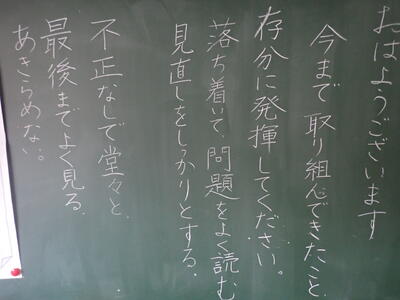 おはようございます
今まで取り組んできたこと
存分に発揮してください。
落ち着いて、問題をよく読む
見直しをしっかりとする。
不正なしで堂々と、
最後までよく見る。
あきらめない。